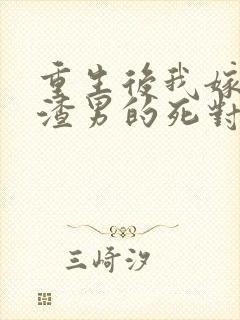 重生後我嫁
渣男的死對
三崎汐